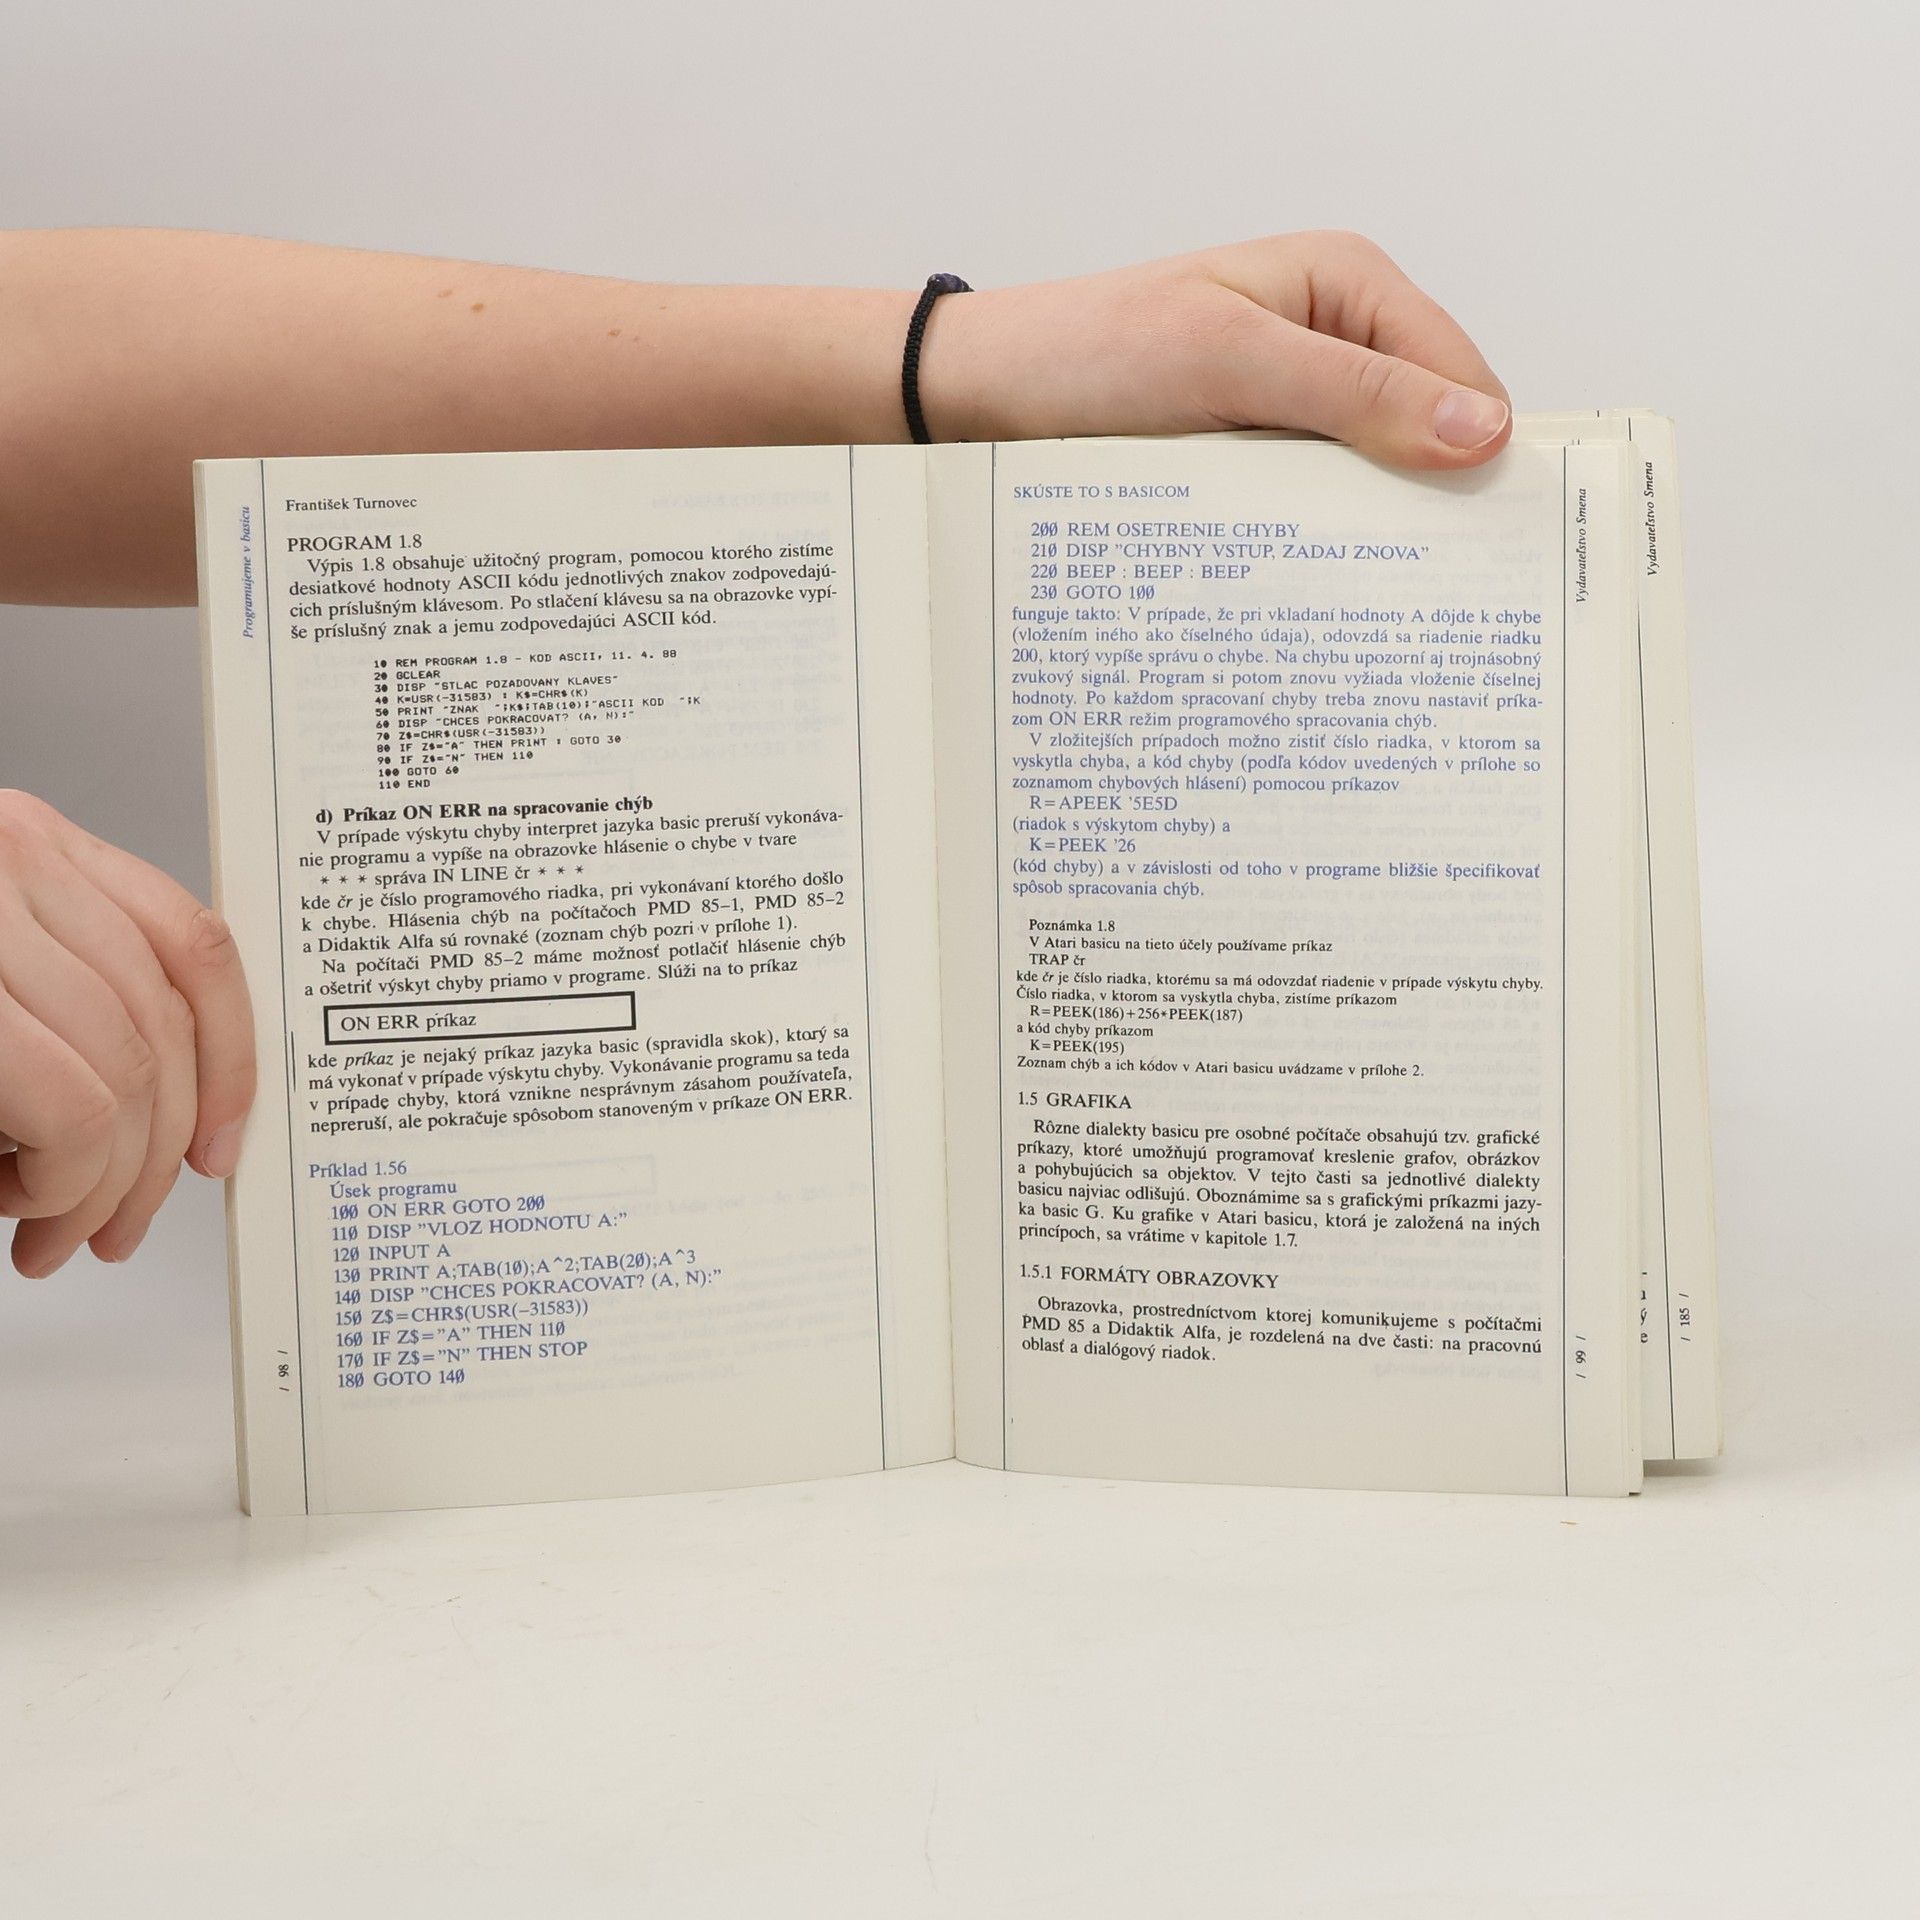 Programujeme v basicu
František Turnovec
PROGRAM 1.8
Výpis 1.8 obsahuje užitočný program, pomocou ktorého zistíme
desiatkové hodnoty ASCII kódu jednotlivých znakov zodpovedajú-
cich príslušným klávesom. Po stlačení klávesu sa na obrazovke vypí-
še príslušný znak a jemu zodpovedajúci ASCII kód.
10 REM PROGRAM 1.8 - KOD ASCII, 11. 4. 88
20 GCLEAR
30 DISP "STLAC POZADOVANY KLAVES"
40 K=USR(-31583) : K$=CHR$(K)
50 PRINT "ZNAK  ";K$;TAB(10);"ASCII KOD  ";K
60 DISP "CHCES POKRACOVAT? (A, N):"
70 Z$=CHR$(USR(-31583))
80 IF Z$="A" THEN PRINT : GOTO 30
90 IF Z$="N" THEN 110
100 GOTO 60
110 END
d) Príkaz ON ERR na spracovanie chýb
V prípade výskytu chyby interpret jazyka basic preruší vykonáva-
nie programu a vypíše na obrazovke hlásenie o chybe v tvare
* * * správa IN LINE čr * * *
kde čr je číslo programového riadka, pri vykonávaní ktorého došlo
k chybe. Hlásenia chýb na počítačoch PMD 85–1, PMD 85–2
a Didaktik Alfa sú rovnaké (zoznam chýb pozri v prílohe 1).
Na počítači PMD 85–2 máme možnosť potlačiť hlásenie chýb
a ošetriť výskyt chyby priamo v programe. Slúži na to príkaz
ON ERR príkaz
kde príkaz je nejaký príkaz jazyka basic (spravidla skok), ktorý sa
má vykonať v prípade výskytu chyby. Vykonávanie programu sa teda
v prípade chyby, ktorá vznikne nesprávnym zásahom používateľa,
nepreruší, ale pokračuje spôsobom stanoveným v príkaze ON ERR.
Príklad 1.56
Úsek programu
100 ON ERR GOTO 200
110 DISP "VLOZ HODNOTU A:"
120 INPUT A
130 PRINT A;TAB(10);A^2;TAB(20);A^3
140 DISP "CHCES POKRACOVAT? (A, N):"
150 Z$=CHR$(USR(–31583))
160 IF Z$="A" THEN 110
170 IF Z$="N" THEN STOP
180 GOTO 140
/ 98 /
SKÚSTE TO S BASICOM
200 REM OSETRENIE CHYBY
210 DISP "CHYBNY VSTUP, ZADAJ ZNOVA"
220 BEEP : BEEP : BEEP
230 GOTO 100
funguje takto: V prípade, že pri vkladaní hodnoty A dôjde k chybe
(vložením iného ako číselného údaja), odovzdá sa riadenie riadku
200, ktorý vypíše správu o chybe. Na chybu upozorní aj trojnásobný
zvukový signál. Program si potom znovu vyžiada vloženie číselnej
hodnoty. Po každom spracovaní chyby treba znovu nastaviť príka-
zom ON ERR režim programového spracovania chýb.
V zložitejších prípadoch možno zistiť číslo riadka, v ktorom sa
vyskytla chyba, a kód chyby (podľa kódov uvedených v prílohe so
zoznamom chybových hlásení) pomocou príkazov
R=APEEK '5E5D
(riadok s výskytom chyby) a
K=PEEK '26
(kód chyby) a v závislosti od toho v programe bližšie špecifikovať
spôsob spracovania chýb.
Poznámka 1.8
V Atari basicu na tieto účely používame príkaz
TRAP čr
kde čr je číslo riadka, ktorému sa má odovzdať riadenie v prípade výskytu chyby.
Číslo riadka, v ktorom sa vyskytla chyba, zistíme príkazom
R=PEEK(186)+256*PEEK(187)
a kód chyby príkazom
K=PEEK(195)
Zoznam chýb a ich kódov v Atari basicu uvádzame v prílohe 2.
1.5 GRAFIKA
Rôzne dialekty basicu pre osobné počítače obsahujú tzv. grafické
príkazy, ktoré umožňujú programovať kreslenie grafov, obrázkov
a pohybujúcich sa objektov. V tejto časti sa jednotlivé dialekty
basicu najviac odlišujú. Oboznámime sa s grafickými príkazmi jazy-
ka basic G. Ku grafike v Atari basicu, ktorá je založená na iných
princípoch, sa vrátime v kapitole 1.7.
1.5.1 FORMÁTY OBRAZOVKY
Obrazovka, prostredníctvom ktorej komunikujeme s počítačmi
PMD 85 a Didaktik Alfa, je rozdelená na dve časti: na pracovnú
oblasť a dialógový riadok.
Vydavateľstvo Smena
/ 99 /
Vydavateľstvo Smena
/ 185 /